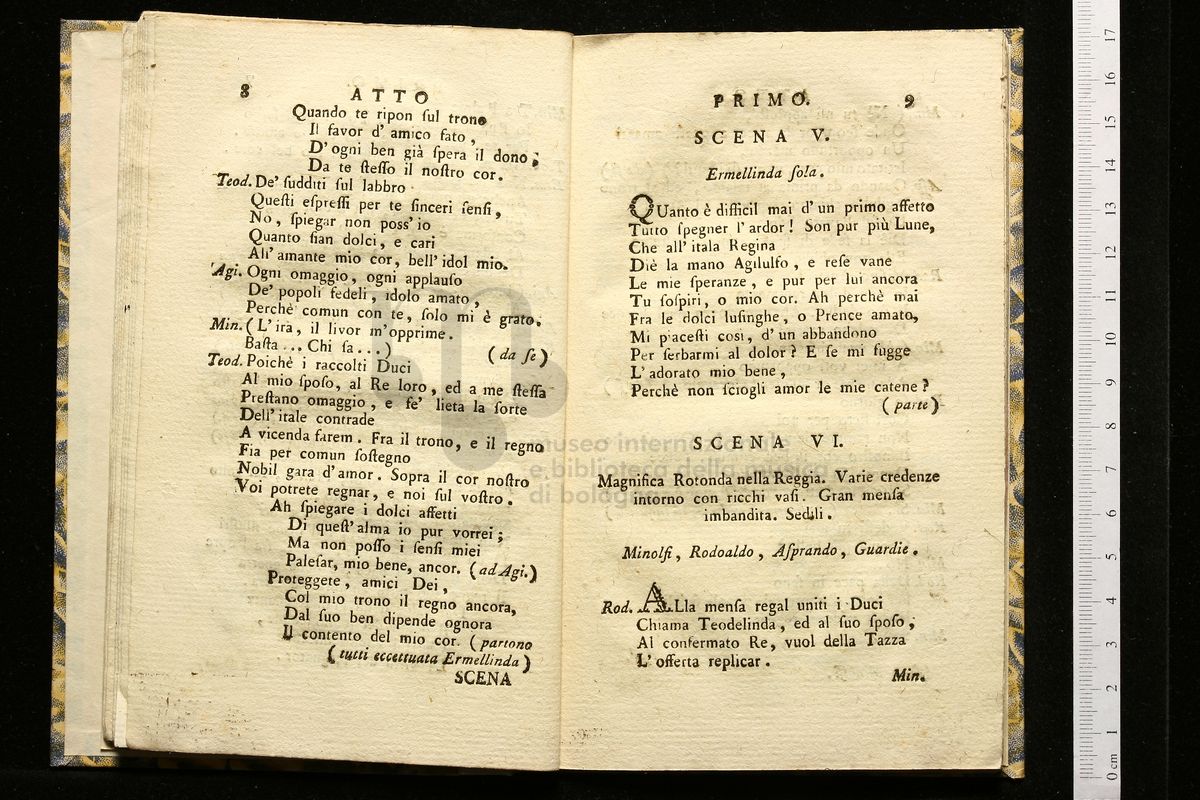 8 ATTO
Quando te ripon ſul trono
Il favor d' amico fato,
D' ogni ben già ſpera il dono;
Da te ſteſſo il noſtro cor.
Teod. De' ſudditi ſul labbro
Queſti eſpreſſi per te ſinceri ſenſi,
No, ſpiegar non poss' io
Quanto ſian dolci, e cari
All' amante mio cor, bell' idol mio.
Agi. Ogni omaggio, ogni applauſo
De' popoli fedeli, idolo amato,
Perchè comun con te, ſolo mi è grato.
Min. (L' ira, il livor m' opprime.
Baſta ... Chi ſa ...) (da ſe)
Teod. Poichè i raccolti Duci
Al mio ſpoſo, al Re loro, ed a me ſteſſa
Preſtano omaggio, e fe' lieta la ſorte
Dell' itale contrade
A vicenda farem. Fra il trono, e il regno
Fia per comun ſoſtegno
Nobil gara d' amor. Sopra il cor noſtro
Voi potrete regnar, e noi ſul voſtro.
Ah ſpiegare i dolci affetti
Di queſt' alma io pur vorrei;
Ma non poſſo i ſenſi miei
Paleſar, mio bene, ancor. (ad Agi.)
Proteggete, amici Dei,
Col mio trono il regno ancora,
Dal ſuo ben dipende ognora
Il contento del mio cor. (partono
(tutti eccettuata Ermellinda)
SCENA
PRIMO. 9
SCENA V.
Ermellinda ſola.
QUanto è difficil mai d' un primo affetto
Tutto ſpegner l' ardor! Son pur più Lune,
Che all' itala Regina
Diè la mano Agilulfo, e reſe vane
Le mie ſperanze, e pur per lui ancora
Tu ſoſpiri, o mio cor. Ah perchè mai
Fra le dolci luſinghe, o Prence amato,
Mi piaceſti così, d' un abbandono
Per ſerbarmi al dolor? E ſe mi fugge
L' adorato mio bene,
Perchè non ſciogli amor le mie catene?
(parte)
SCENA VI.
Magnifica Rotonda nella Reggia. Varie credenze
intorno con ricchi vaſi. Gran menſa
imbandita. Sedili.
Minolfi, Rodoaldo, Aſprando, Guardie.
Rod. ALla menſa regal uniti i Duci
Chiama Teodelinda, ed al ſuo ſpoſo,
Al confermato Re, vuol della Tazza
L' offerta replicar.
Min.
museo internazionale
e biblioteca della musica
di bologna
17
16
15
14
13
12
11
10
9
8
7
6
5
4
3
2
1
0 cm